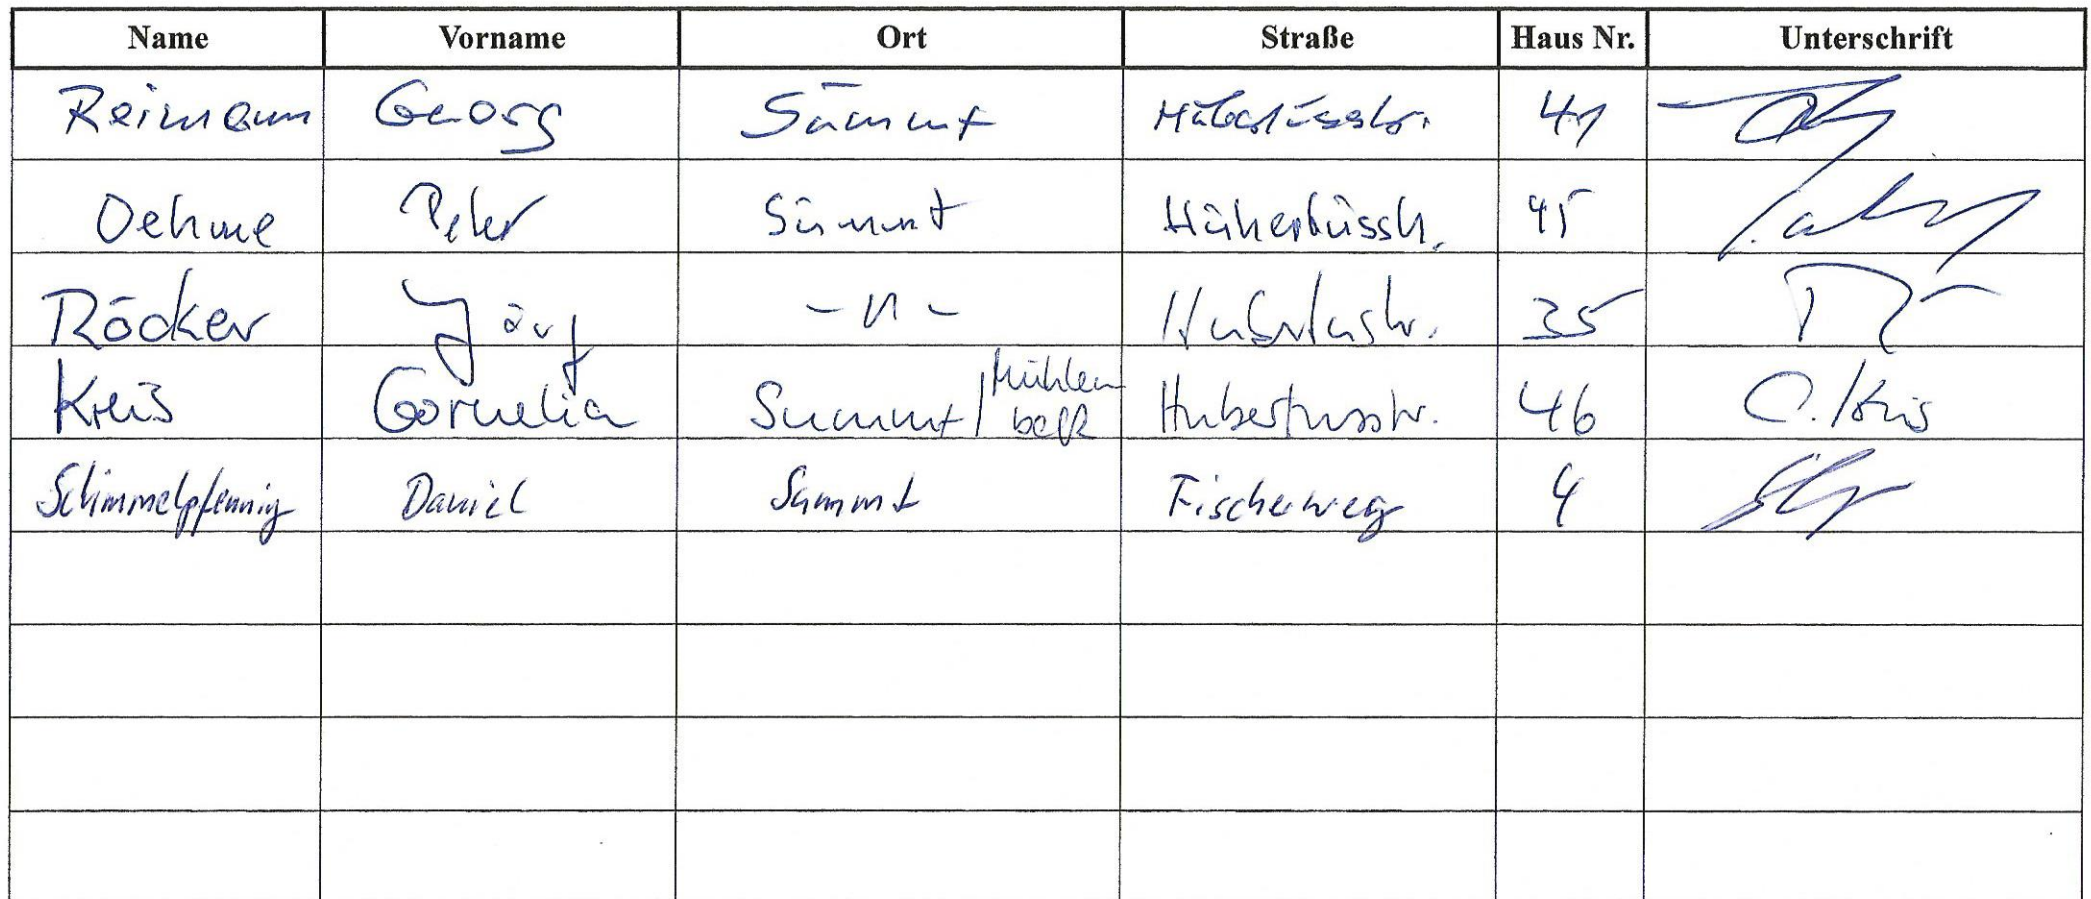 Name Vorname Ort Straße Haus Nr. Unterschrift
Reimann Georg Summt Hubertusstr. 41
Oehme Peter Summt Hubertusstr. 45
Röcker Jörg - " - Hubertusstr. 35
Kreis Cornelia Summt / Mühlen Hubertusstr. 46 C. Kreis
beck
Schimmelpfennig Daniel Summt Fischerweg 4